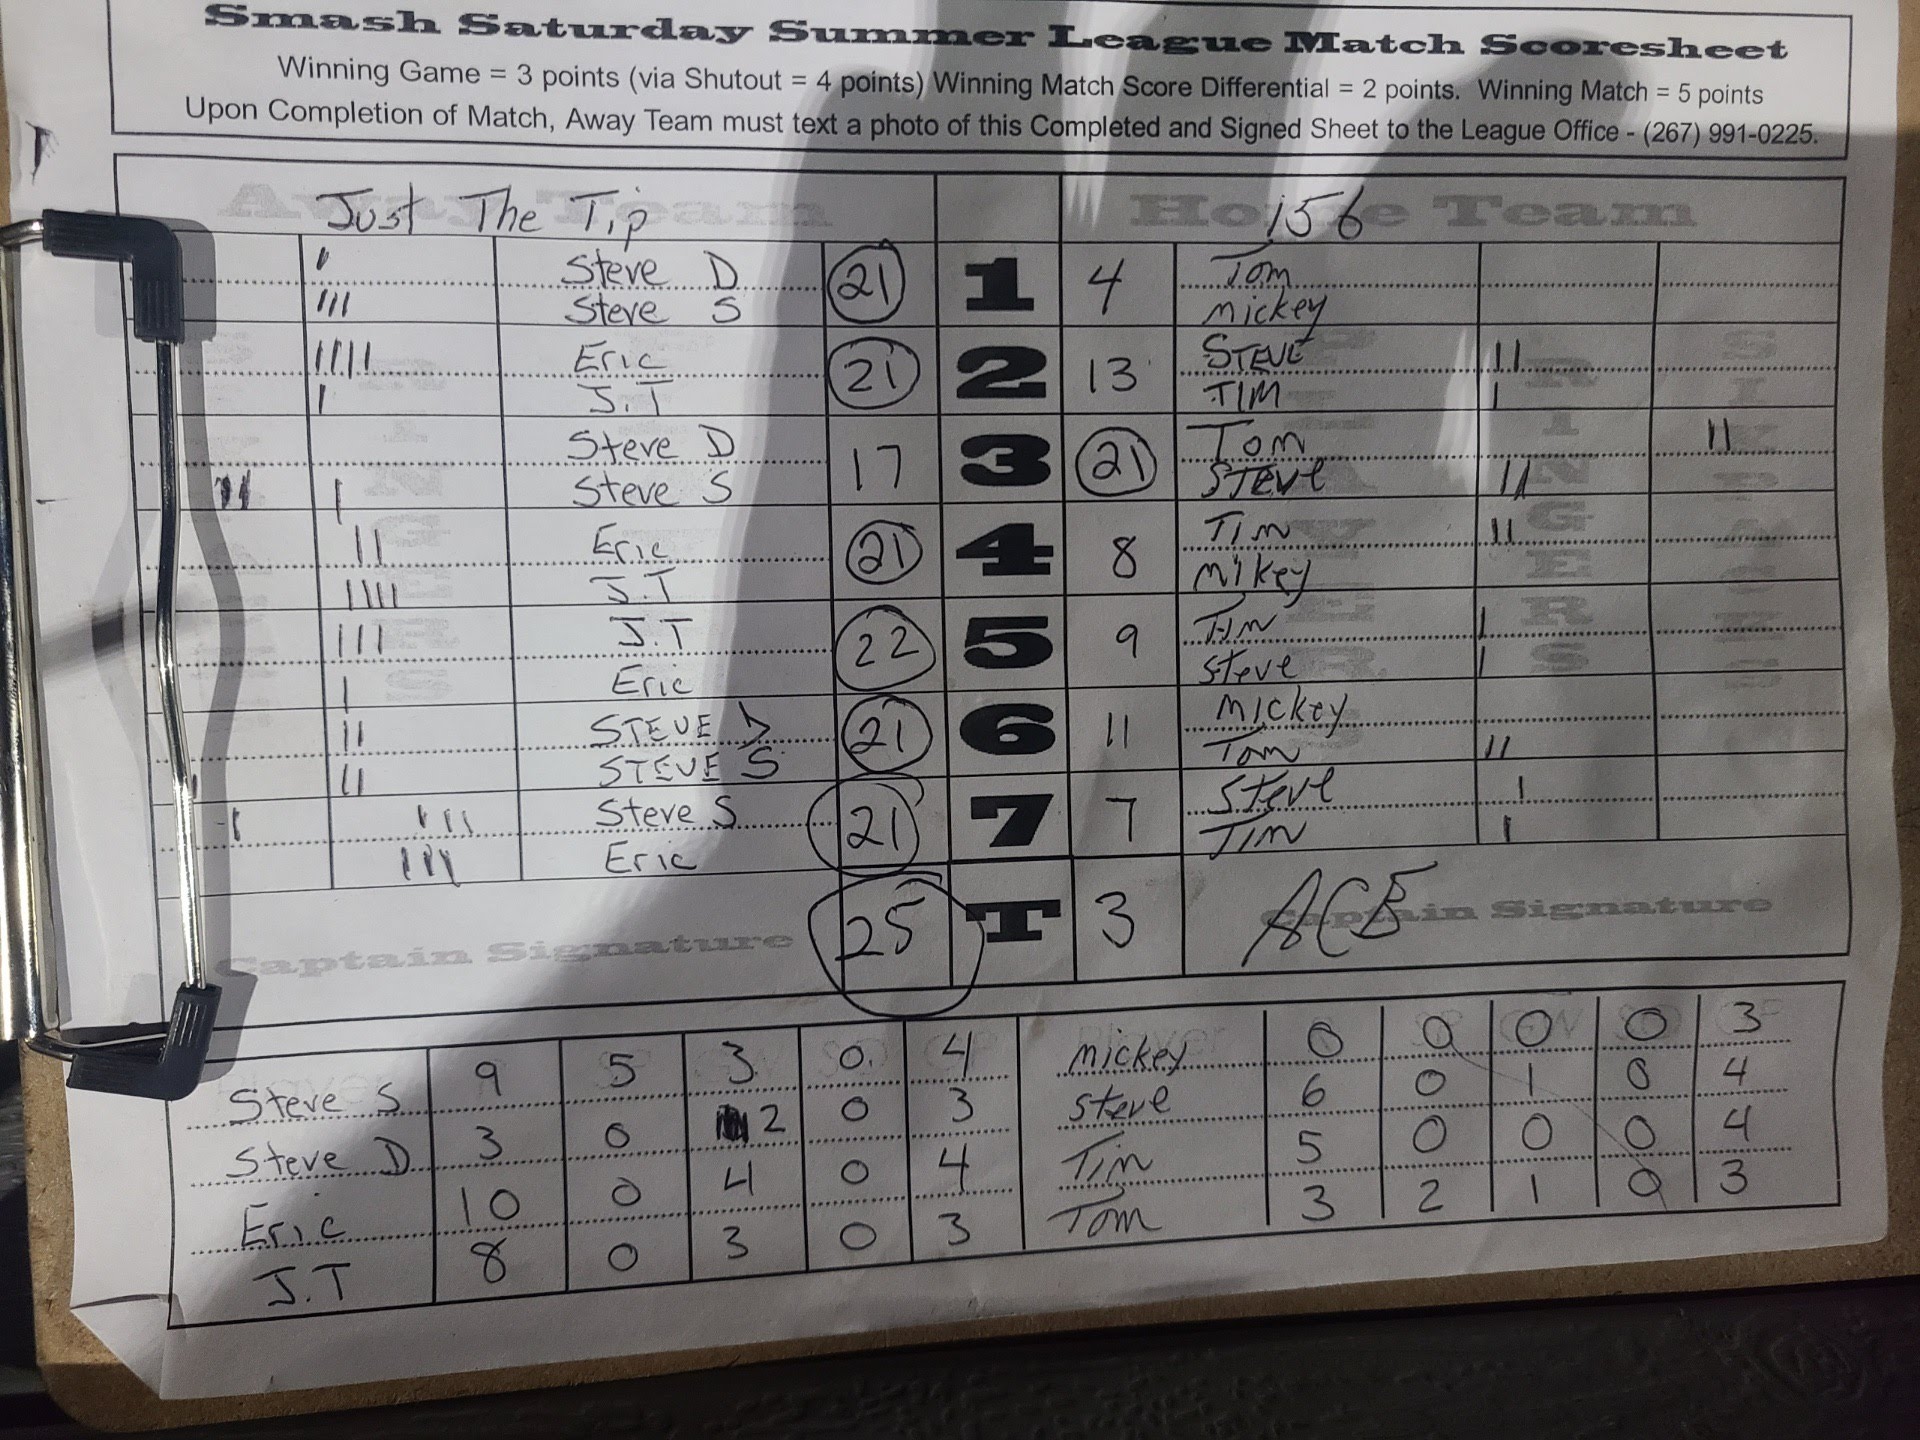 Smash Saturday Summer League Match Scoresheet
Winning Game = 3 points (via Shutout = 4 points) Winning Match Score Differential = 2 points. Winning Match = 5 points
Upon Completion of Match, Away Team must text a photo of this Completed and Signed Sheet to the League Office - (267) 991-0225.
Away Team Just The Tip Home Team 156
Steve D 21 1 4 Tom
Steve S Mickey
Eric 21 2 13 STEVE
J.T TIM
Steve D 17 3 21 Tom
Steve S STEVE
Eric 21 4 8 TIM
J.T Mikey
J.T 22 5 9 TIM
Eric Steve
STEVE D 21 6 11 Mickey
STEVE S Tom
Steve S 21 7 7 Steve
Eric TIM
Captain Signature 25 T 3 ACE Captain Signature
Steve S 9 5 3 0 4 Mickey 0 0 0 0 3
Steve D 3 0 2 0 3 Steve 6 0 1 0 4
Eric 10 0 4 0 4 Tim 5 0 0 0 4
J.T 8 0 3 0 3 Tom 3 2 1 0 3